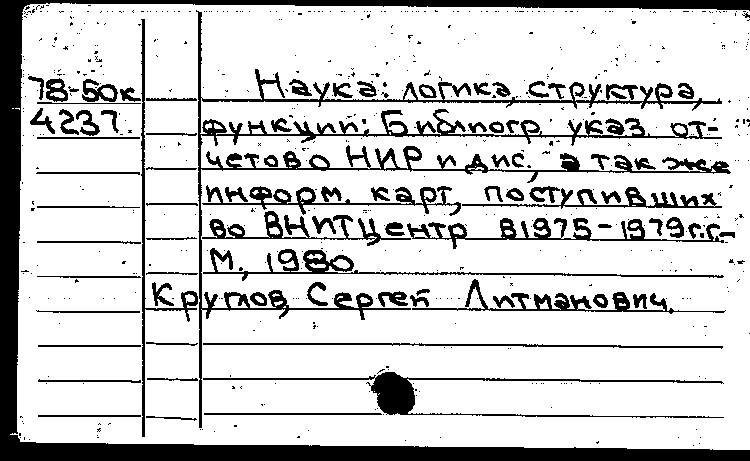 78-50к Наука: логика, структура,
4237. функции: Библиогр. указ. от-
четов о НИР и дис., а так же
информ. карт, поступивших
во ВНИТЦентр в 1975-1979г.г.-
М., 1980.
Круглов, Сергей Литманович.